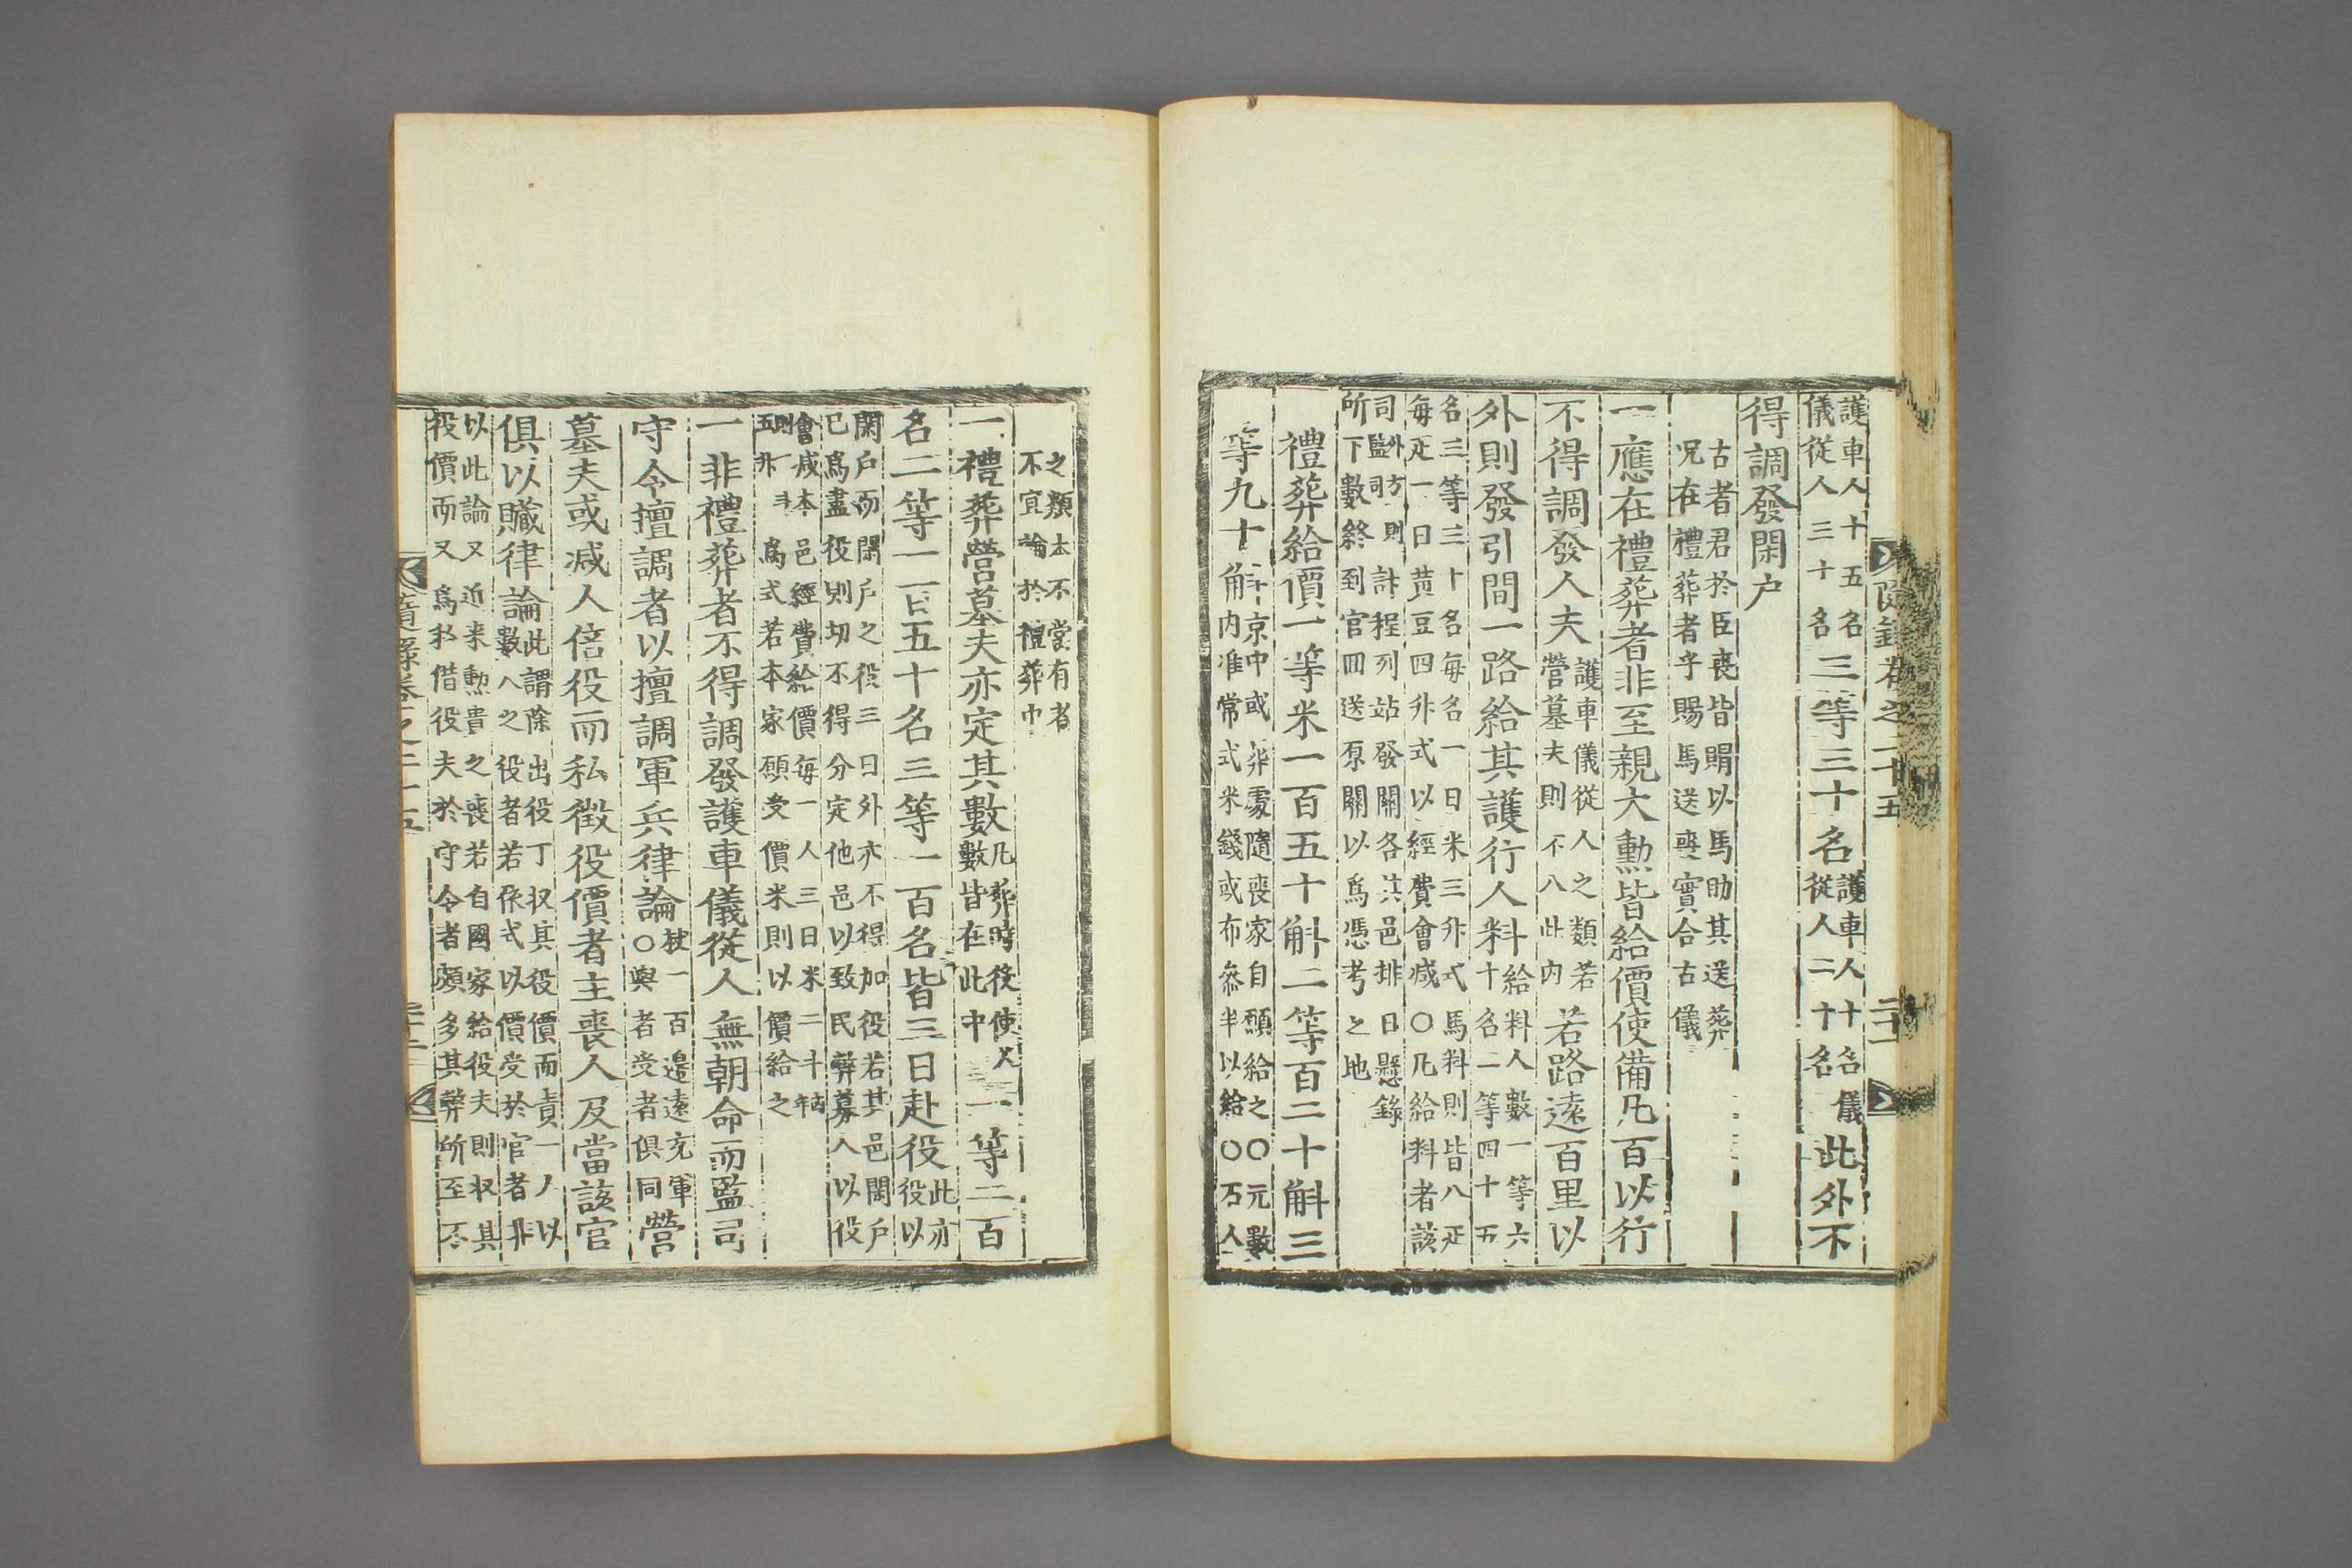 護車人十五名
儀從人三十名
三等三十名
護車人十名儀
從人二十名
此外不
得調發閑户
古者君於臣喪皆賵以馬助其送葬
况在禮葬者乎賜馬送喪實合古儀
一應在禮葬者非至親大勳皆給價使備凡百以行
不得調發人夫
護車儀從人之類若
營墓夫則不入此内
若路遠百里以
外則發引間一路給其護行人料
給料人數一等六
十名二等四十五
名三等三十名每名一日米三升式馬料則皆八疋
每疋一日黄豆四升式以經費會减〇凡給料者該
司外方則計程列站發關各其邑排日懸錄
監司
所下數終到官回送原關以爲憑考之地
禮葬給價一等米一百五十斛二等百二十斛三
等九十斛
京中或葬處隨喪家自願給之〇元數
内准常式米錢或布叅半以給〇石人
隨錄卷之二十五
之類本不當有者
不宜論於禮葬中
一禮葬營墓夫亦定其數
凡葬時役使人
數皆在此中
一等二百
名二等一百五十名三等一百名皆三日赴役
此亦
役以
閑户而閑户之役三日外亦不得加役若其邑閑户
已爲盡役則切不得分定他邑以致民弊募人以役
會减本邑經費給價每一人三日米二斗
五升爲式若本家願受價米則以價給之
一非禮葬者不得調發護車儀從人無朝命而監司
守令擅調者以擅調軍兵律論
杖一百邊遠充軍
〇與者受者俱同
營
墓夫或减人倍役而私徵役價者主喪人及當該官
俱以贓律論
此謂除出役丁收其役價而責一人以
數人之役者若係式以價受於官者非
以此論又近来勳貴之喪若自國家給役夫則收其
役價而又爲私借役夫於守令者頗多其弊所至不
隨錄卷之二十五